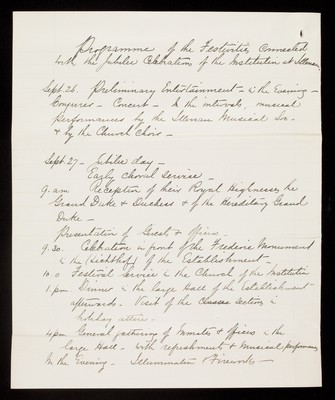 Programme of the Festivities Connected
with the Jubilee Celebrations of the Institution at Illenau
Sept 26. Preliminary Entertainment - in the Evening -
Conjuror - Concert - In the intervals, musical
performances by the Illenau Musical Soc.
& by the Church Choir -
Sept 27 - Jubilee day -
Early Choral Service -
9. am Reception of their Royal Highnesses the
Grand Duke & Duchess & of the Hereditary Grand
Duke -
Presentation of Guests & officers.
9.30. Celebration in front of the Frederic Monument
in the of the Establishment -
10.0 Festival Service in the Church of the Institution
1. pm. Dinner in the large Hall of the Establishment -
afterwards. Visit of the Sections in
holiday attire -
4 pm General gathering of Inmates & officers in the
large Hall - with refreshments & Musical performances
In the Evening - Illumination & Fireworks -